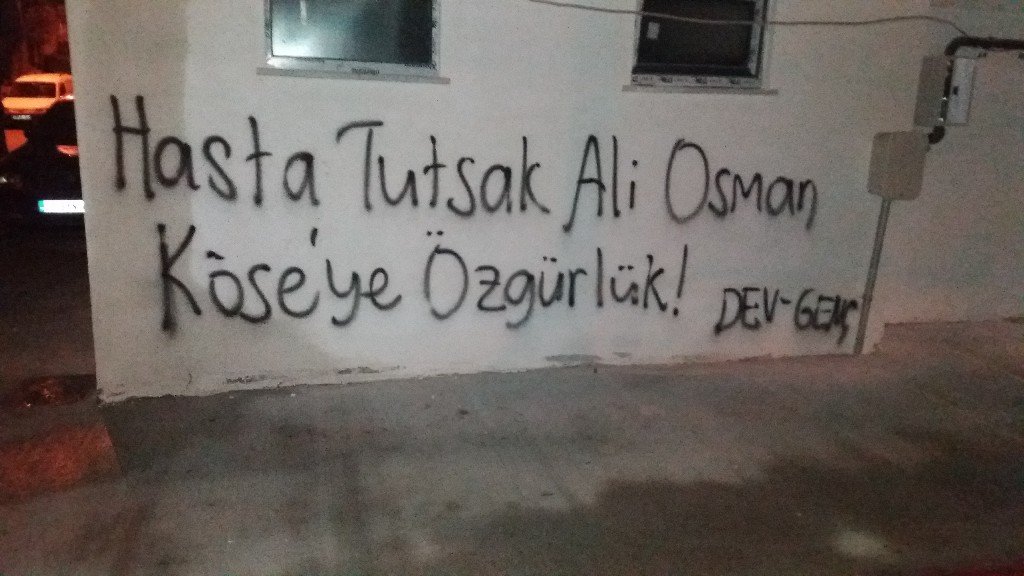 Hasta Tutsak Ali Osman
Köse'ye Özgürlük! DEV-GENÇ